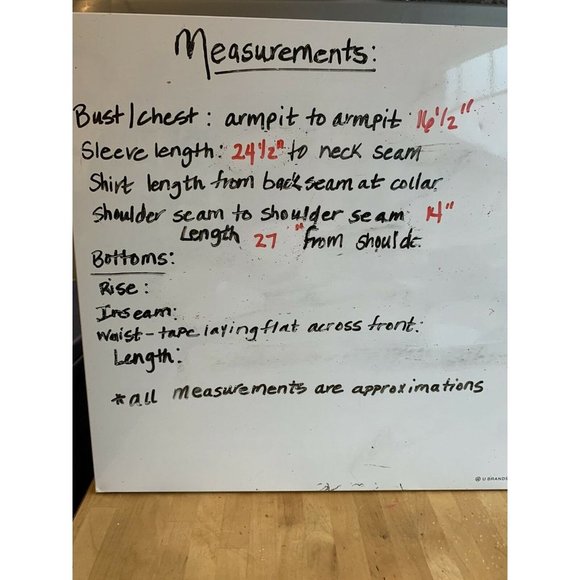 Measurements:
Bust/chest: armpit to armpit 16 1/2"
Sleeve length: 24 1/2" to neck seam
Shirt length from back seam at collar
Shoulder seam to shoulder seam 14"
Length 27" from should
Bottoms:
Rise:
Inseam:
Waist-tape laying flat across front:
Length:
*all measurements are approximations
U BRANDS